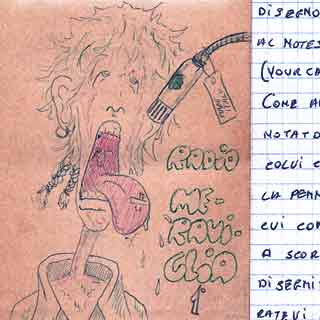 RADIO
ME-
RAVI-
GLIA
DISEGNO
AL NOTES
(YOUR CA
COME A
NOTATO
COLUI C
LA PENN
CUI COM
A SCOR
DISEGNI
RATEVI